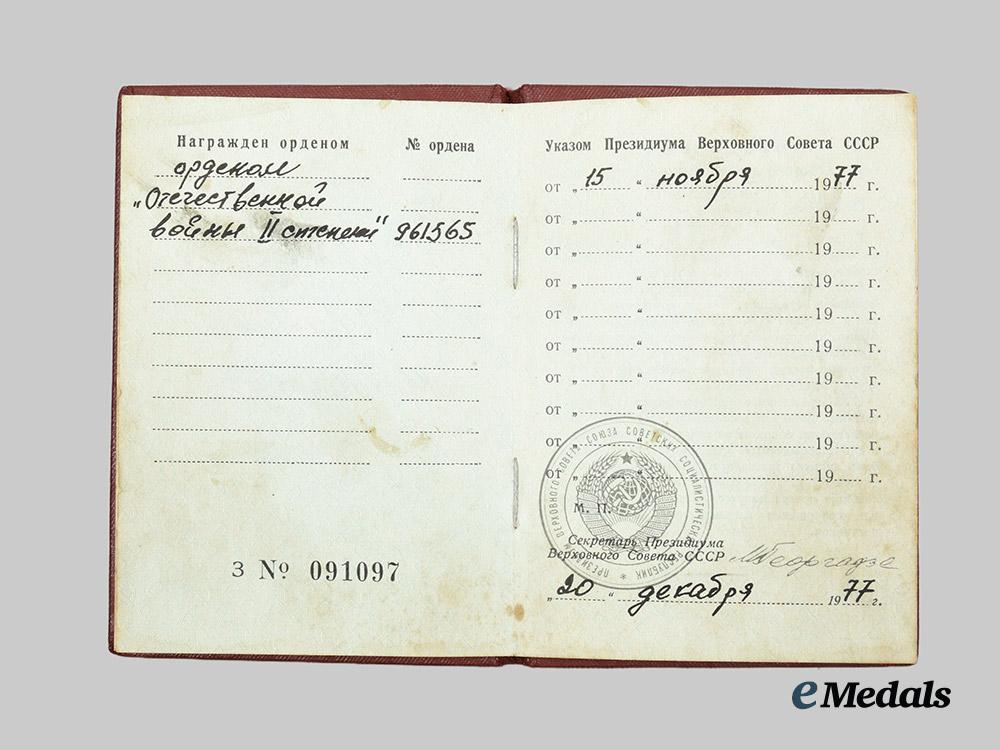 Награжден орденом
№ ордена
орденом
„Отечественной
войны II степени" 961565
З № 091097
Указом Президиума Верховного Совета СССР
от „ 15 “ ноября 1977 г.
от „ “ 19 г.
от „ “ 19 г.
от „ “ 19 г.
от „ “ 19 г.
от „ “ 19 г.
от „ “ 19 г.
от „ “ 19 г.
от „ “ 19 г.
от „ “ 19 г.
ПРЕЗИДИУМ ВЕРХОВНОГО СОВЕТА СОЮЗА СОВЕТСКИХ СОЦИАЛИСТИЧЕСКИХ РЕСПУБЛИК
М. П.
Секретарь Президиума
Верховного Совета СССР МГеоргадзе
„ 20 “ декабря 1977 г.
eMedals